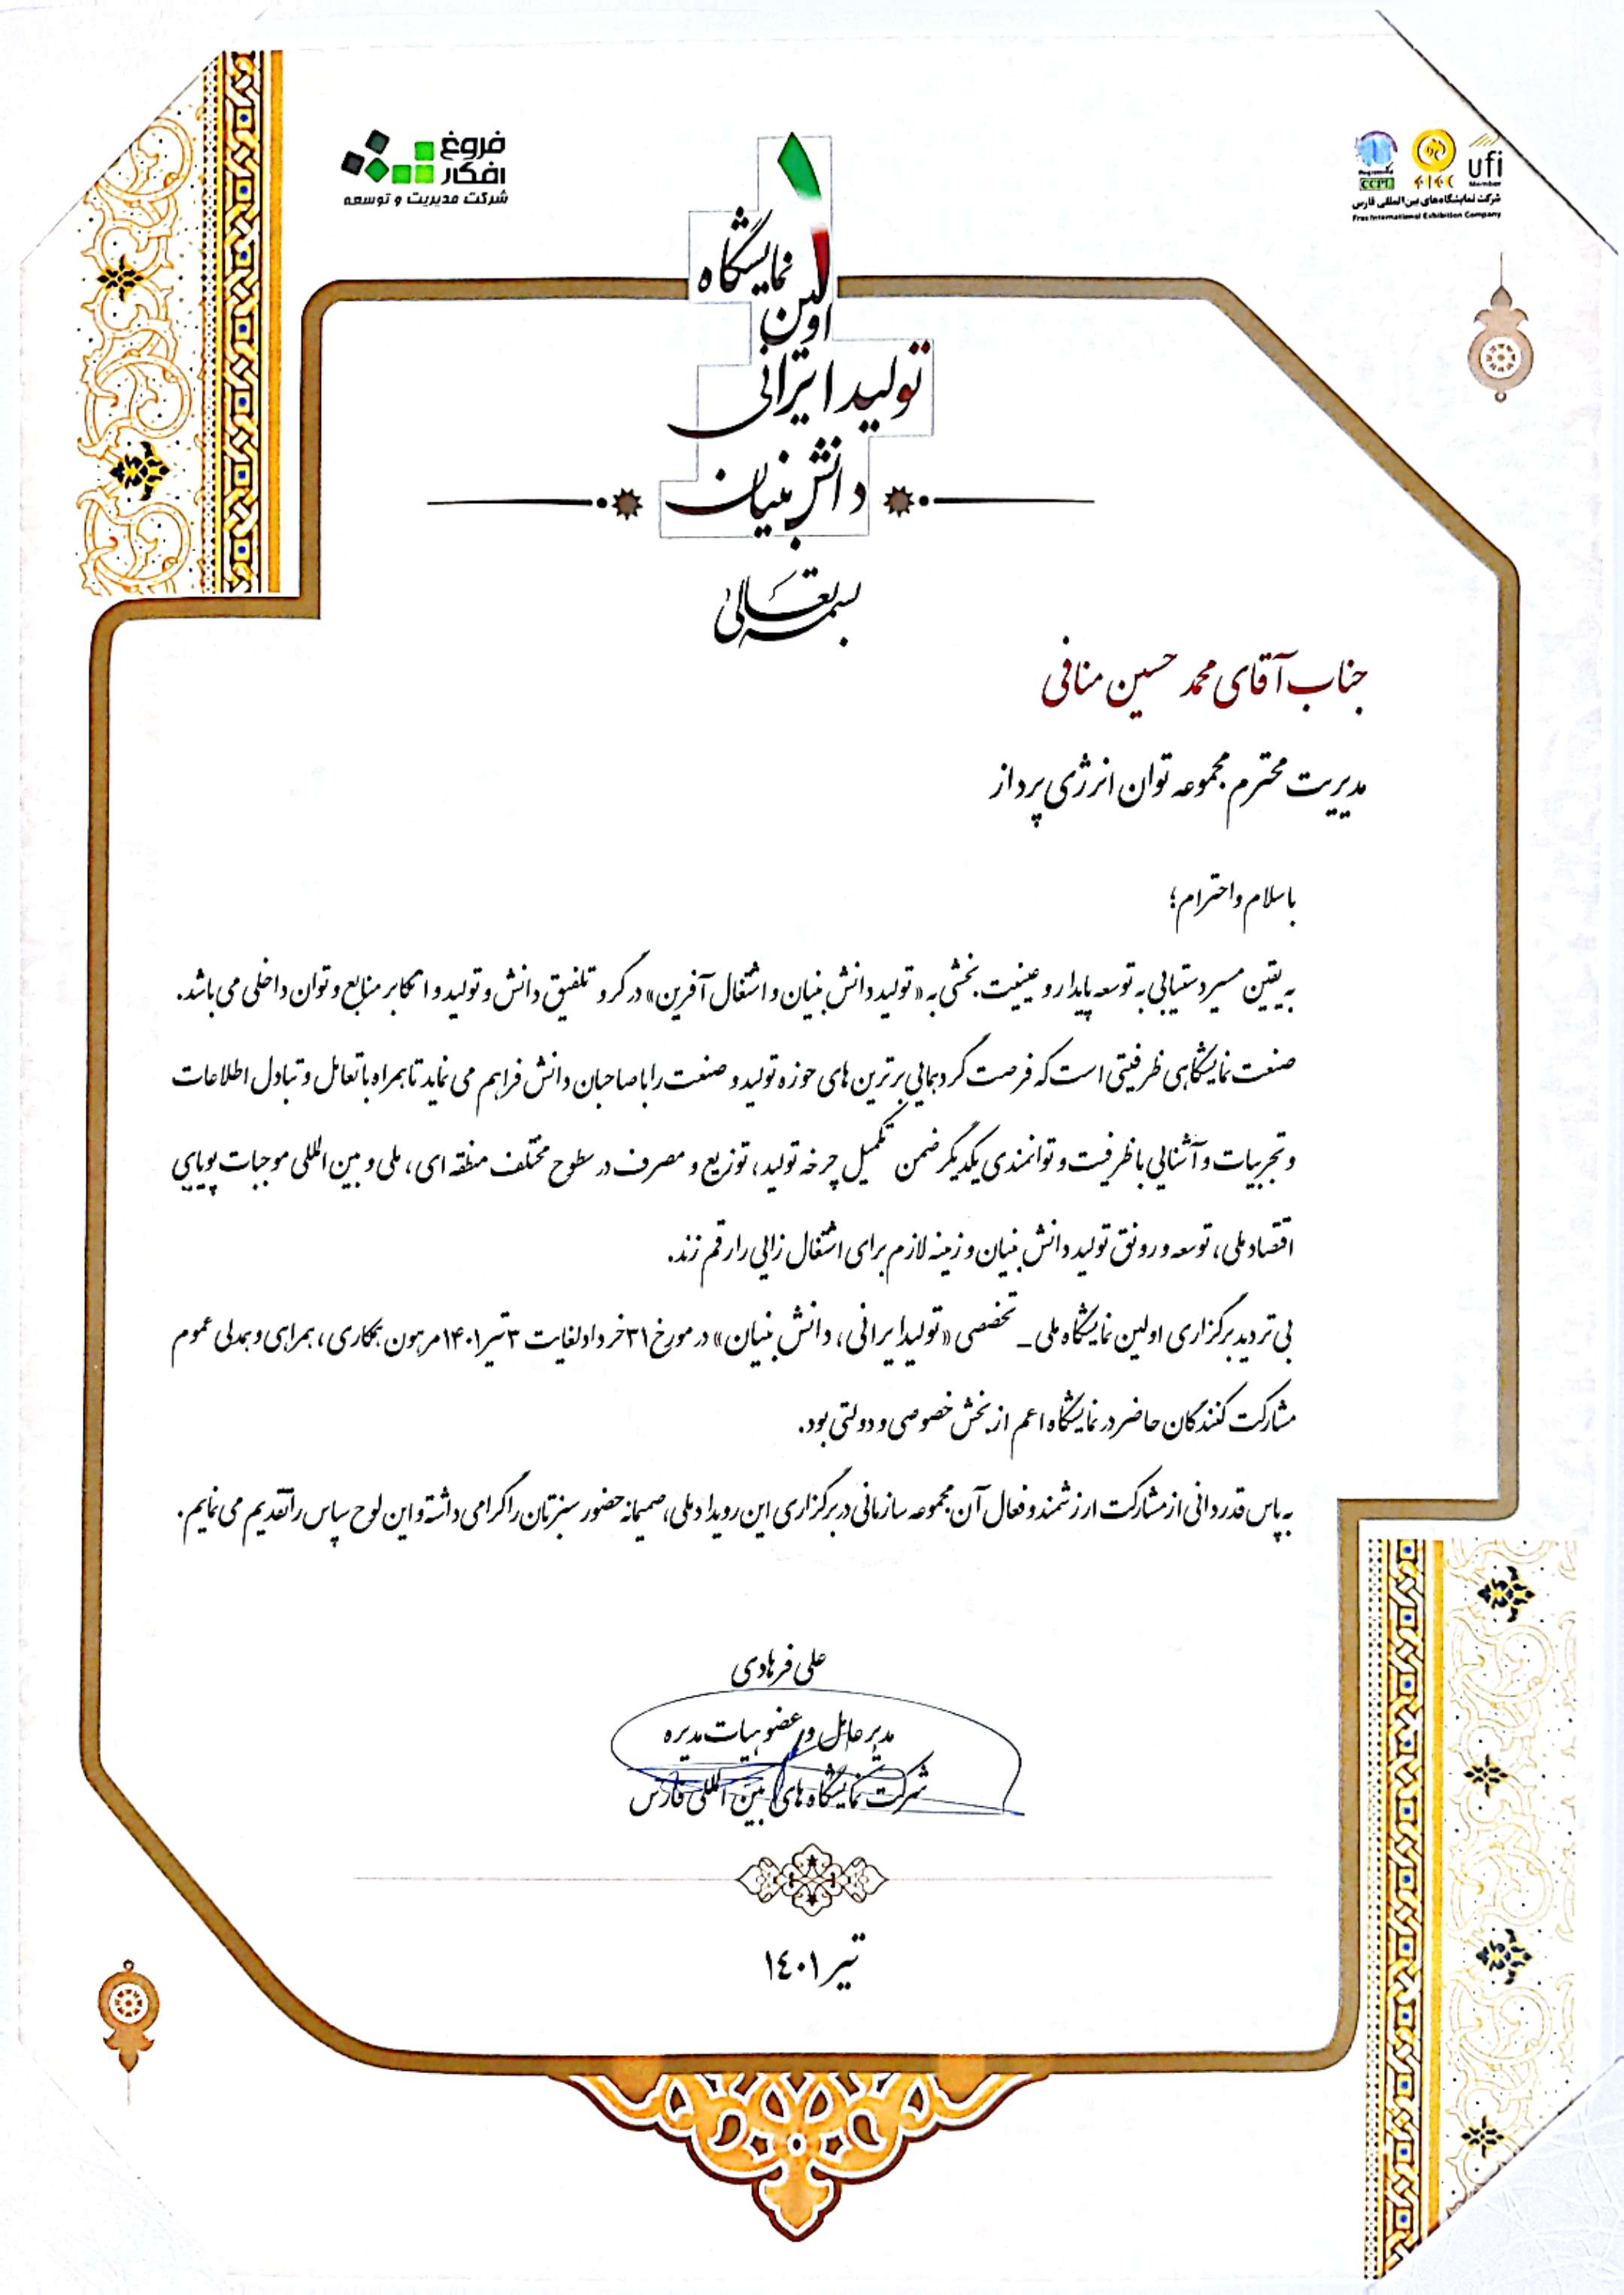 فروغ
افکار
شرکت مدیریت و توسعه
ufi
Member
CCPI
شرکت نمایشگاه‌های بین‌المللی فارس
Fras International Exhibition Company
اولین نمایشگاه
تولید ایرانی
دانش بنیان
بسمه تعالی
جناب آقای محمد حسین منافی
مدیریت محترم مجموعه توان انرژی پرداز
با سلام و احترام؛
به یقین مسیر دستیابی به توسعه پایدار و عینیت بخشی به «تولید دانش بنیان و اشتغال آفرین» در گرو تلفیق دانش و تولید و اتکا بر منابع و توان داخلی می باشد.
صنعت نمایشگاهی ظرفیتی است که فرصت گردهمایی برترین های حوزه تولید و صنعت را با صاحبان دانش فراهم می نماید تا همراه با تعامل و تبادل اطلاعات
و تجربیات و آشنایی با ظرفیت و توانمندی یکدیگر ضمن تکمیل چرخه تولید، توزیع و مصرف در سطوح مختلف منطقه ای، ملی و بین المللی موجبات پویایی
اقتصاد ملی، توسعه و رونق تولید دانش بنیان و زمینه لازم برای اشتغال زایی را رقم زند.
بی تردید برگزاری اولین نمایشگاه ملی - تخصصی «تولید ایرانی، دانش بنیان» در مورخ ۳۱ خرداد لغایت ۳ تیر ۱۴۰۱ مرهون همکاری، همراهی و همدلی عموم
مشارکت کنندگان حاضر در نمایشگاه اعم از بخش خصوصی و دولتی بود.
به پاس قدردانی از مشارکت ارزشمند و فعال آن مجموعه سازمانی در برگزاری این رویداد ملی، صمیمانه حضور سبزتان را گرامی داشته و این لوح سپاس را تقدیم می نمایم.
علی فرهادی
مدیر عامل و عضو هیات مدیره
شرکت نمایشگاه های بین المللی فارس
تیر ۱۴۰۱